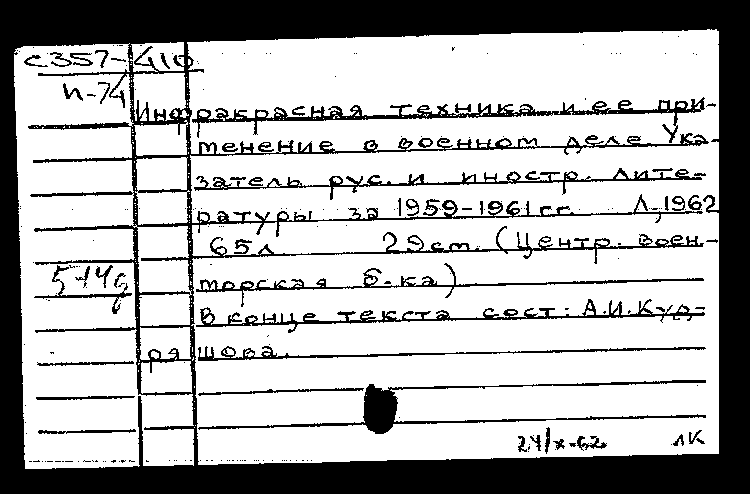 С357-410
п-74
Инфракрасная техника и ее при-
менение в военном деле. Ука-
затель рус. и иностр. лите-
ратуры за 1959-1961 гг. Л., 1962
65л. 29см. (Центр. воен-
морская б-ка)
В конце текста сост: А.И.Куд-
ряшова.
24/X-62 ЛК